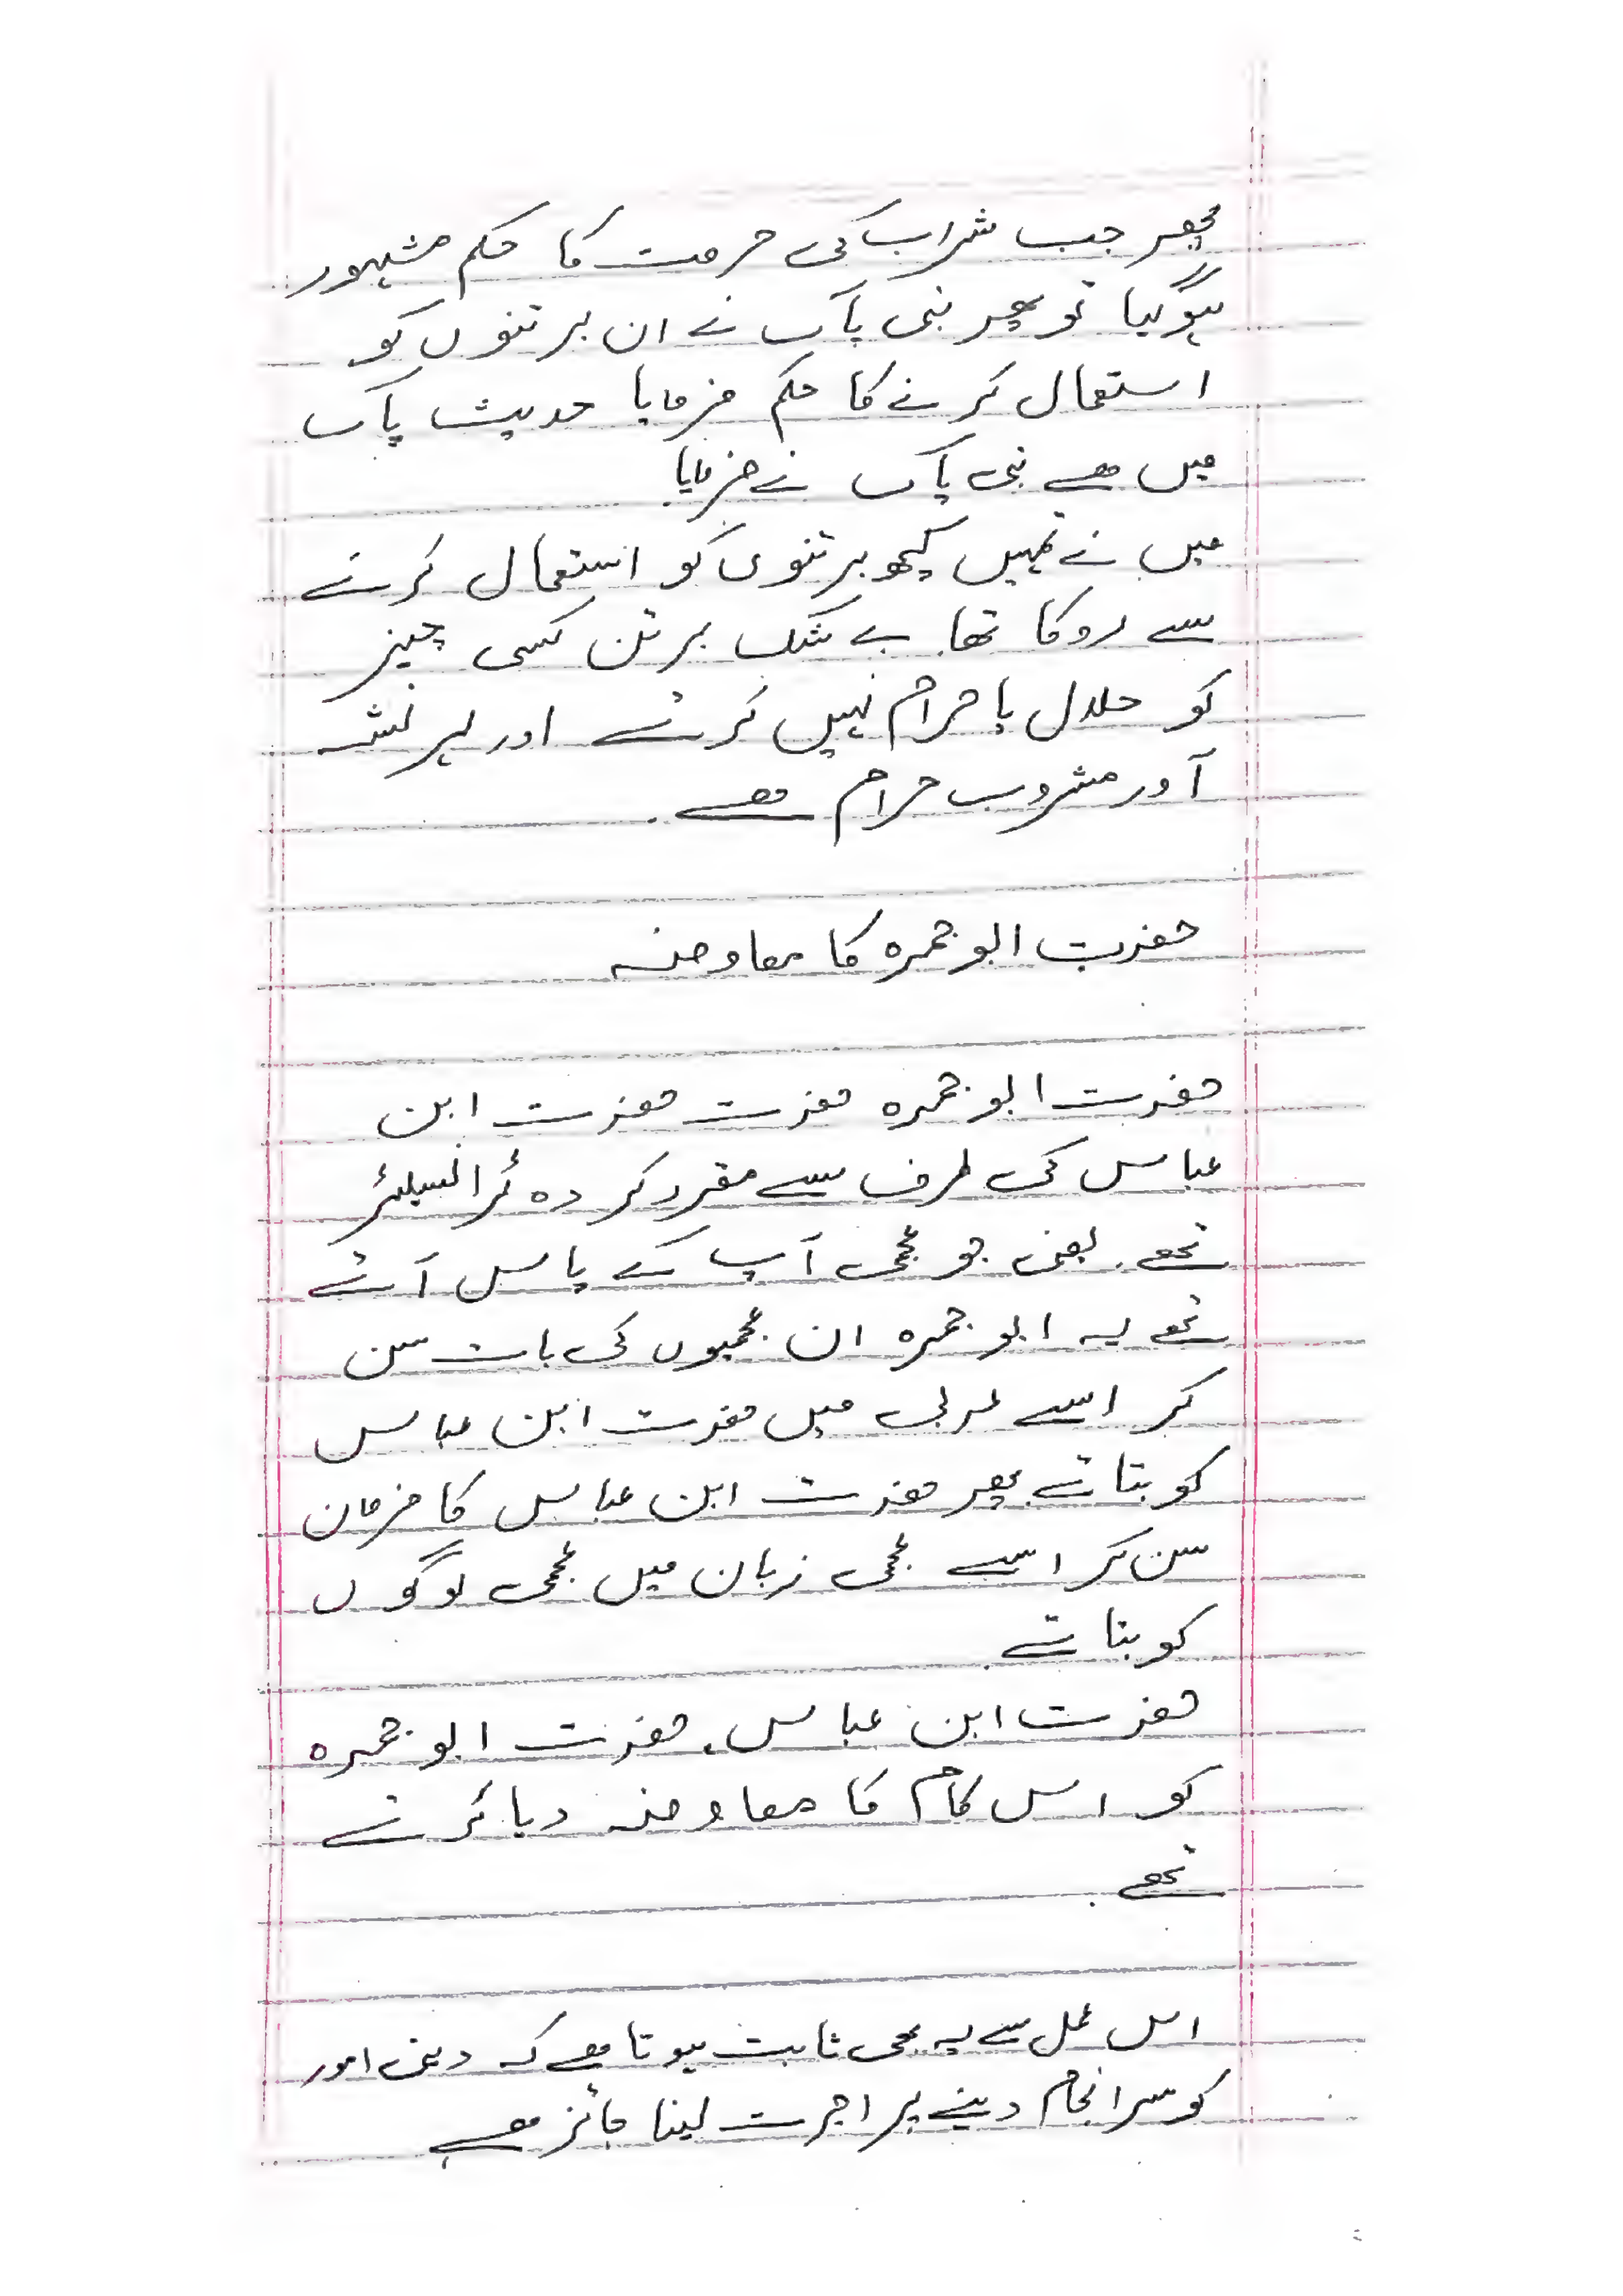 پھر جب شراب کی حرمت کا حکم مشہور
ہوگیا تو پھر نبی پاک نے ان برتنوں کو
استعمال کرنے کا حکم فرمایا حدیث پاک
میں ھے نبی پاک نے فرمایا
میں نے تمہیں کچھ برتنوں کو استعمال کرنے
سے روکا تھا بے شک برتن کسی چیز
کو حلال یا حرام نہیں کرتے اور ہر نشہ
آور مشروب حرام ھے۔
حضرت ابو جمرہ کا معاوضہ
حضرت ابو جمرہ حضرت حضرت ابن
عباس کی طرف سے مقرر کردہ ٹرانسلیٹر
تھے۔ یعنی جو عجمی آپ کے پاس آتے
تھے یہ ابو جمرہ ان عجمیوں کی بات سن
کر اسے عربی میں حضرت ابن عباس
کو بتاتے پھر حضرت ابن عباس کا فرمان
سن کر اسے عجمی زبان میں عجمی لوگوں
کو بتاتے
حضرت ابن عباس، حضرت ابو جمرہ
کو اس کام کا معاوضہ دیا کرتے
تھے۔
اس عمل سے یہ بھی ثابت ہوتا ھے کہ دینی امور
کو سرانجام دینے پر اجرت لینا جائز ھے